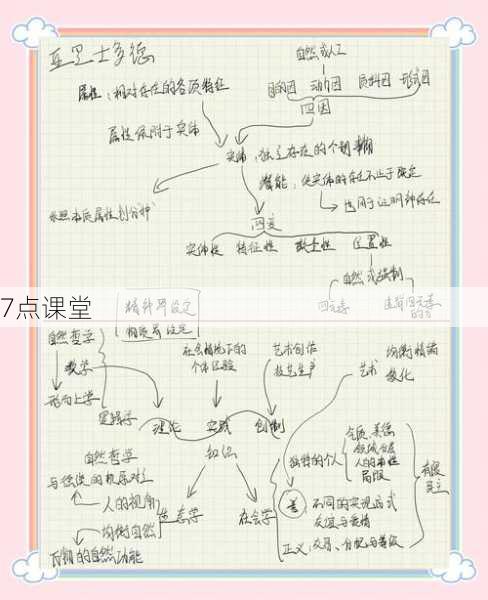 亚里士多德
自然或人工
属性：相对存在的各项特征
目的因 动力因 质料因 形式因
四因
属性依附于实体
实体：独立存在的个别事物
潜能：使实体的存在不止于确定
也用于证明神存在
依照本质属性划分种
四变
实体性 特征性 数量性 位置性
自然或强制
四元素
7点课堂
精神界设定
物质界设定
自然哲学
数学
形而上学
逻辑学
社会情境下的
个体经验
艺术创作
技艺生产
艺术
均衡情绪
教化
理论 实践 创制
知识
自然哲学
与
的机原对立
人的视角
均衡自然
万物的自然功能
生态学
社会学
独特的个人
气质、美德
人的本性
局限
善
不同的实现方式
友谊与爱情
正义
有限
民主